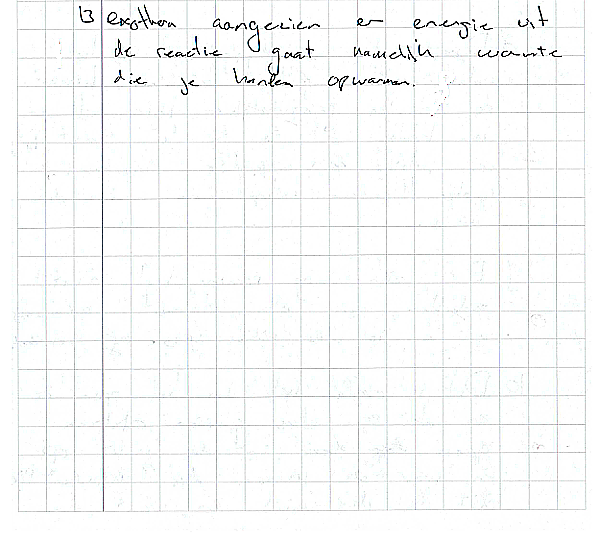 13 exotherm aangezien er energie uit
de reactie gaat namelijk warmte
die je handen opwarmen.